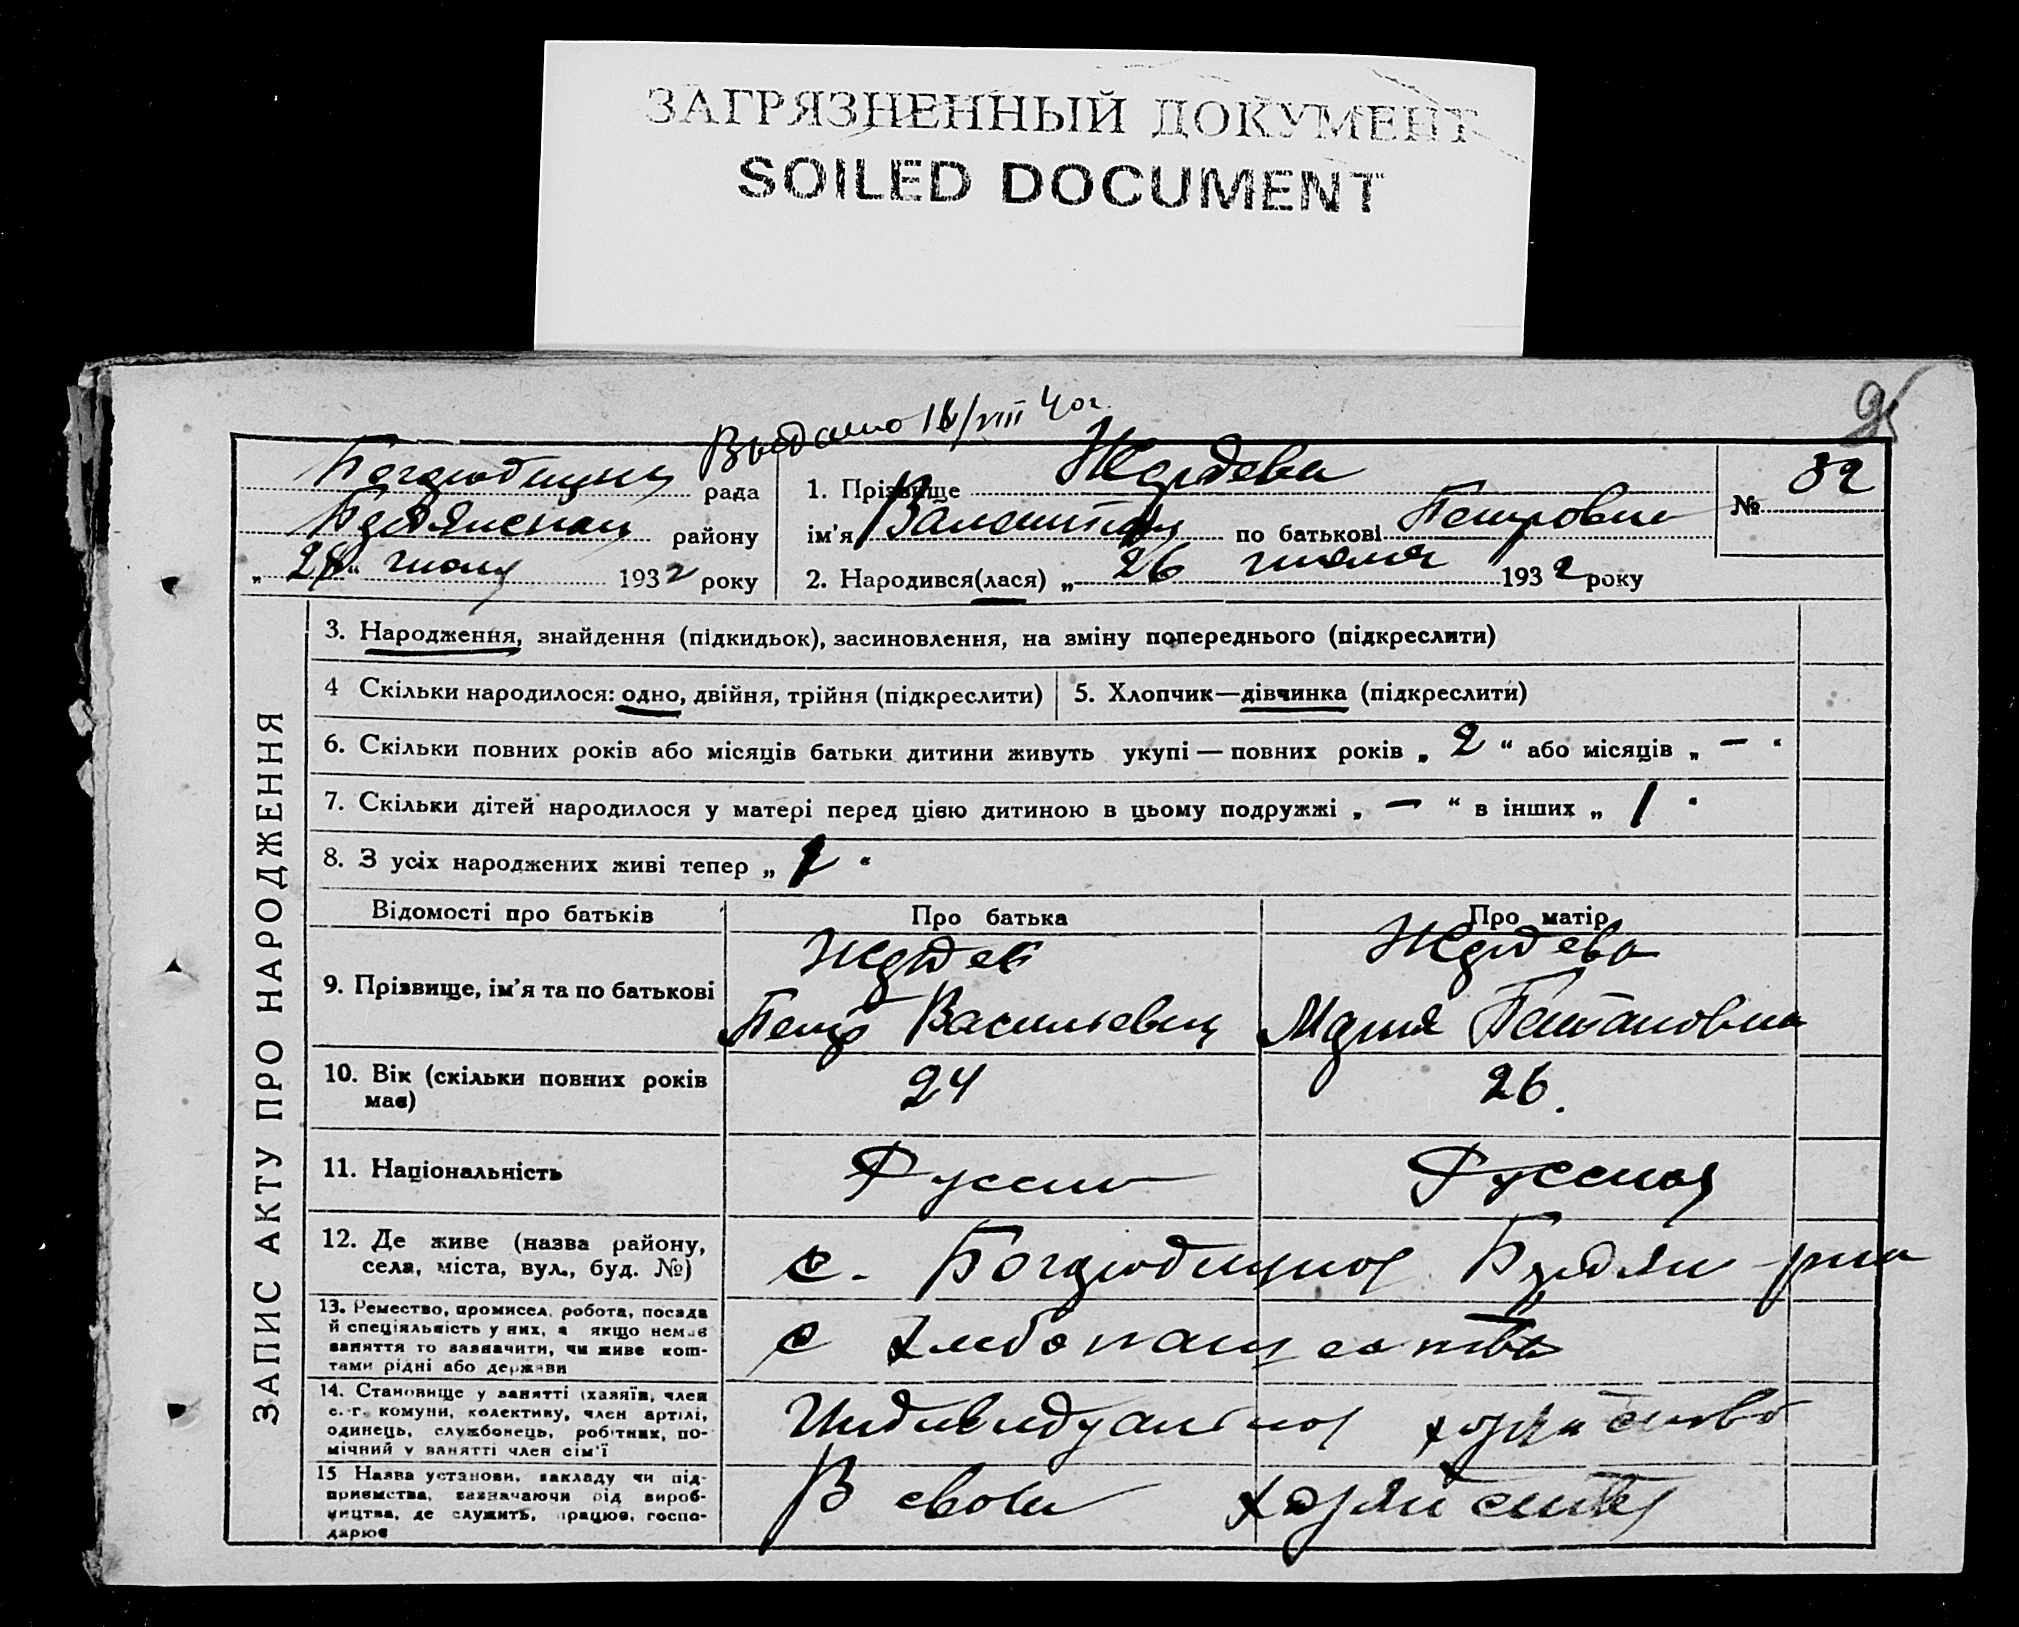 ЗАГРЯЗНЕННЫЙ ДОКУМЕНТ
SOILED DOCUMENT
Выдано 16/VIII 40 г.
рада
району
„ “ июля 1932 року
1. Прізвище
ім'я Валентина по батькові Петровна
2. Народився(лася) „ 26 июля 1932 року
№ 32
ЗАПИС АКТУ ПРО НАРОДЖЕННЯ
3. Народження, знайдення (підкидьок), засиновлення, на зміну попереднього (підкреслити)
4 Скільки народилося: одно, двійня, трійня (підкреслити)
5. Хлопчик—дівчинка (підкреслити)
6. Скільки повних років або місяців батьки дитини живуть укупі — повних років „ 2 “ або місяців „ — “
7. Скільки дітей народилося у матері перед цією дитиною в цьому подружжі „ — “ в інших „ 1 “
8. З усіх народжених живі тепер „ “
Відомості про батьків
Про батька
Про матір
9. Прізвище, ім'я та по батькові
Петр Васильевич
Мария
10. Вік (скільки повних років має)
24
26.
11. Національність
Русский
Русская
12. Де живе (назва району,
села, міста, вул., буд. №)
с.
13. Ремество, промисел, робота, посада
й спеціяльність у них, а якщо немає
заняття то зазначити, чи живе кош-
тами рідні або держави
с хлебопашества
14. Становище у занятті (хазяїн, член
с.-г. комуни, колективу, член артілі,
одинець, службовець, робітник, по-
мічний у занятті член сім'ї
Индивидуальное хозяйство
15 Назва установи, закладу чи під-
приємства, зазначаючи рід вироб-
ництва, де служить, працює, госпо-
дарює
В своем хозяйстве